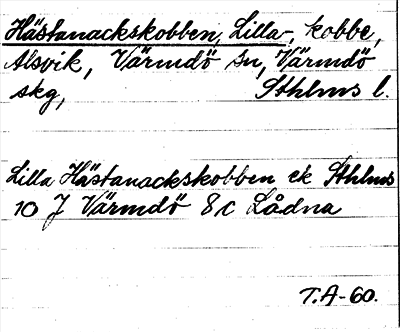 Hästanackskobben, Lilla-, kobbe,
Alsvik, Värmdö sn, Värmdö
skg, Sthlms l.
Lilla Hästanackskobben ek Sthlms
10 J Värmdö 8c Lådna
T.A-60.